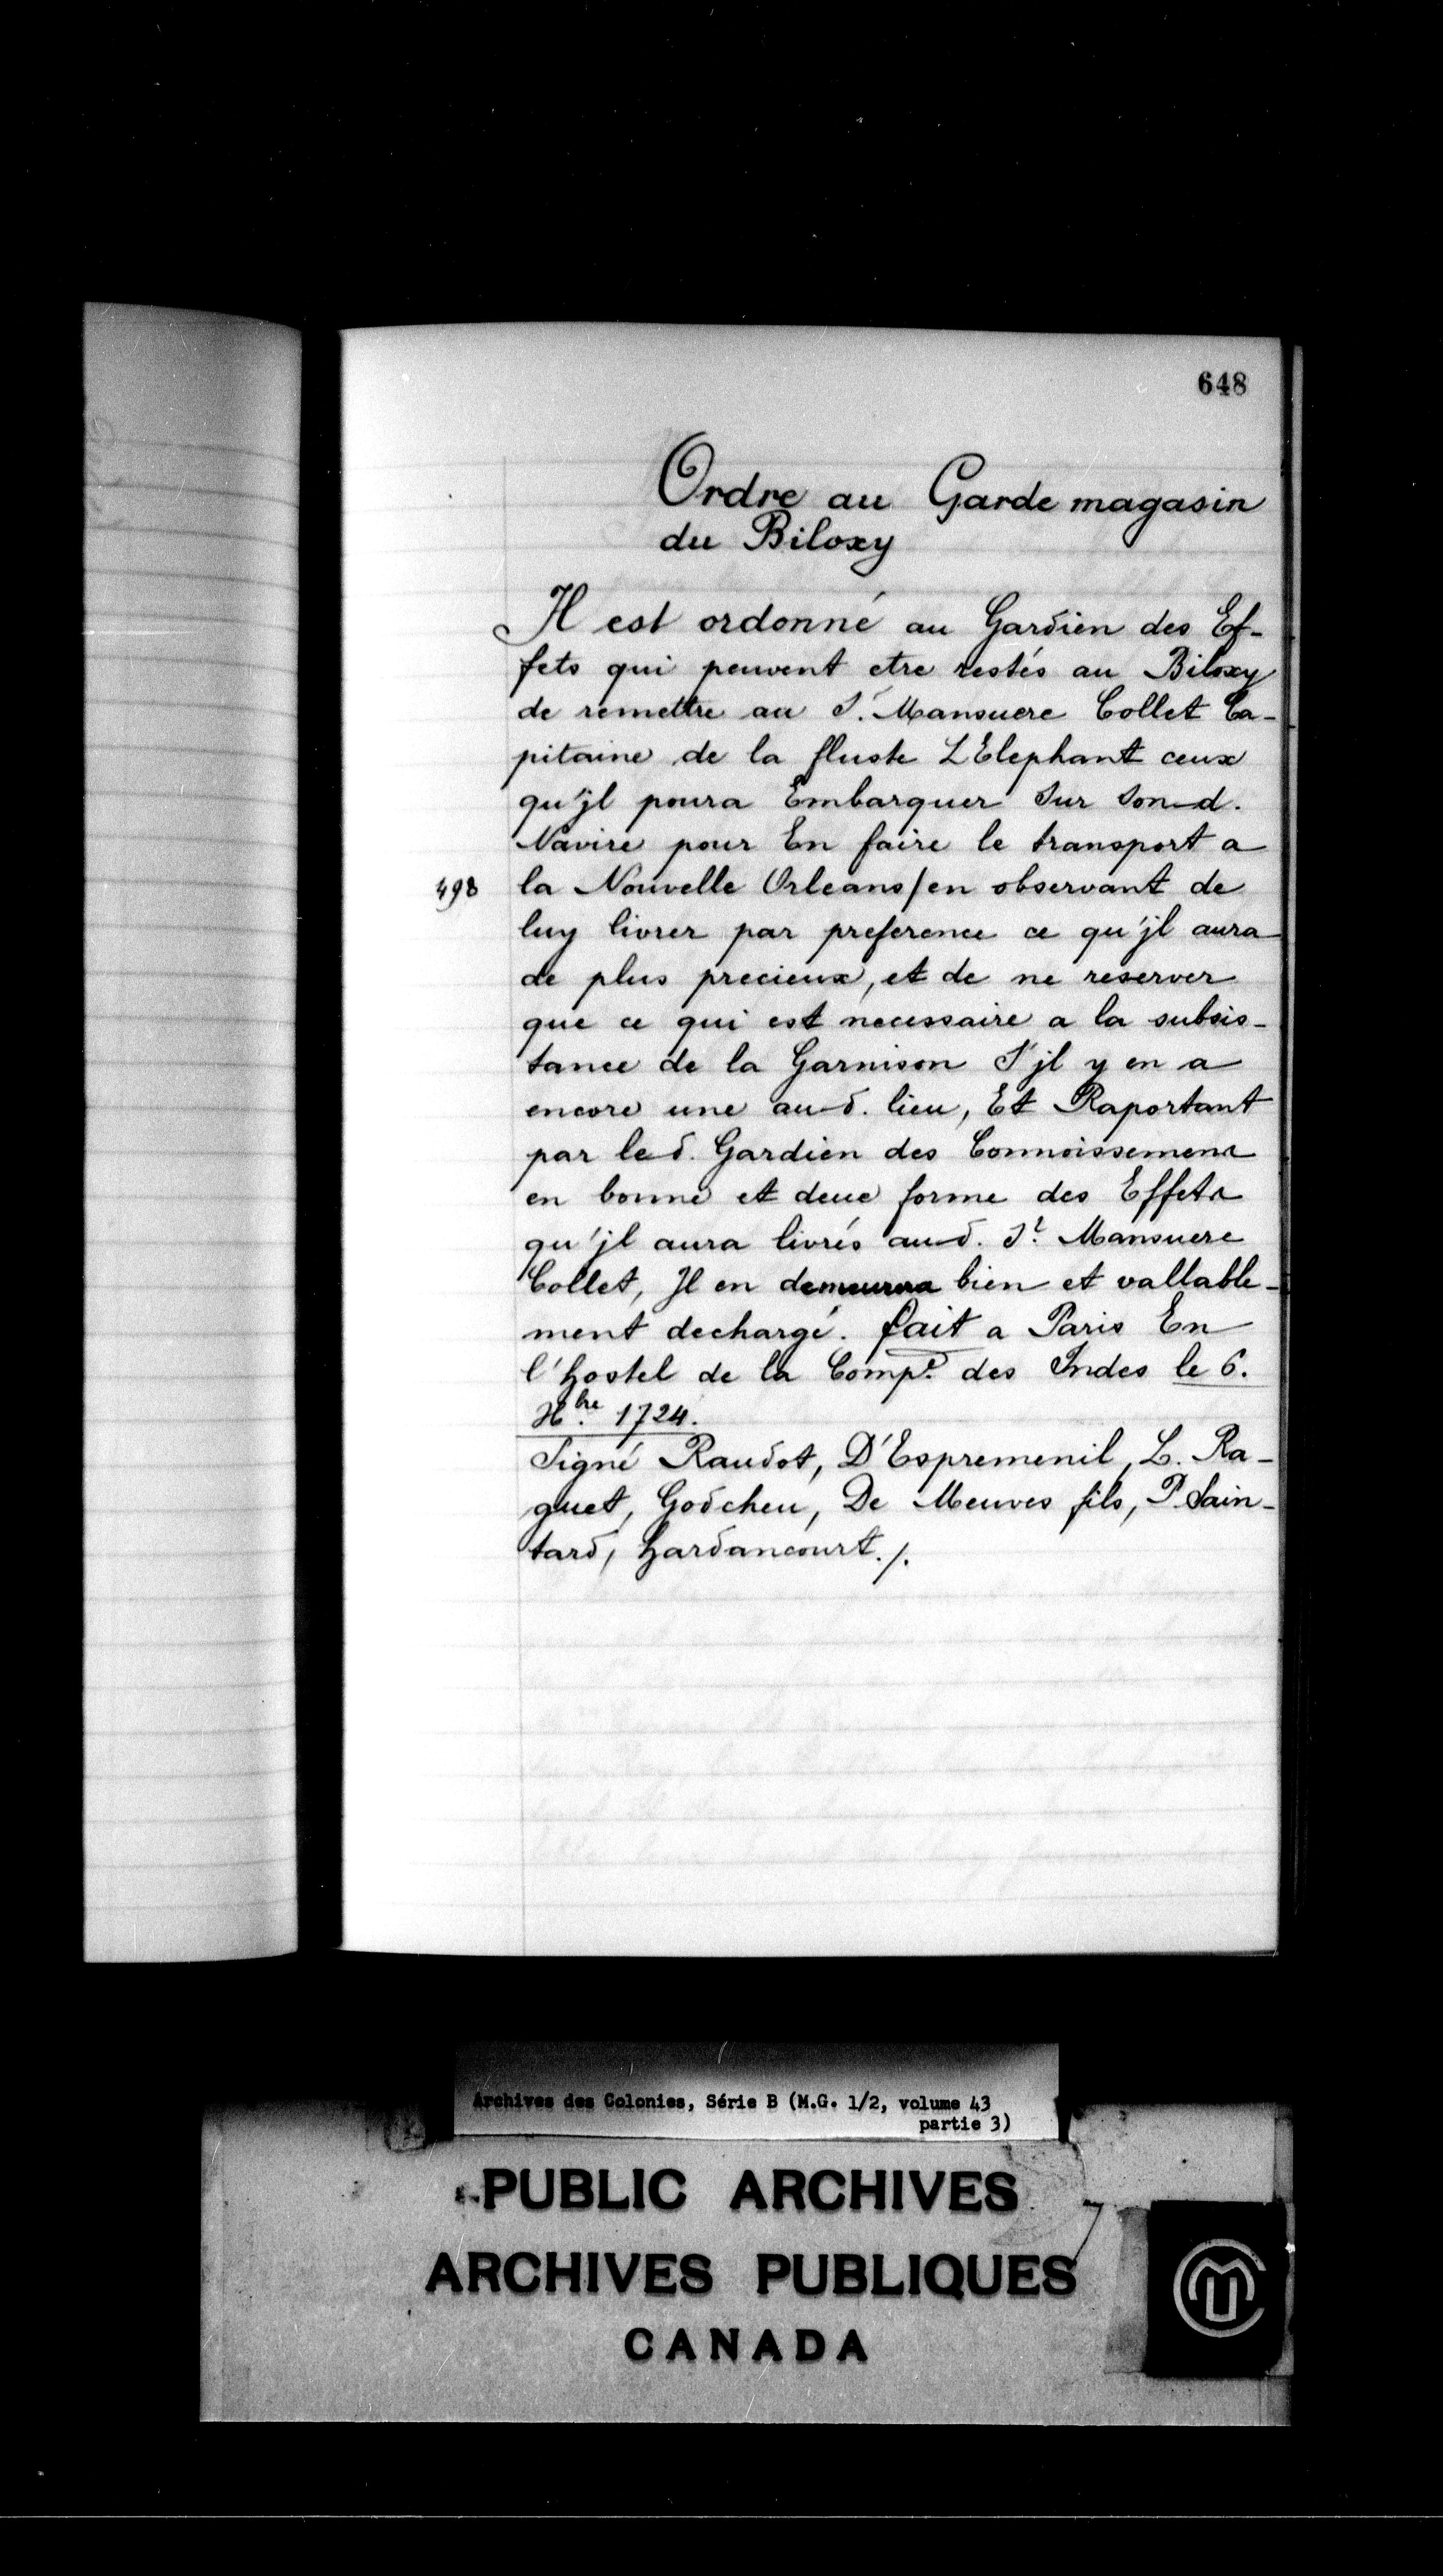 648
Ordre au Garde magasin
du Biloxy
Il est ordonné au Gardien des Ef-
fets qui peuvent etre restés au Biloxy
de remettre au S.r Mansuere Collet Ca-
pitaine de la fluste L'Elephant ceux
qu'jl poura Embarquer Sur Son d.
Navire pour En faire le transport a
498 la Nouvelle Orleans/en observant de
luy livrer par preference ce qu'jl aura
de plus precieux, et de ne reserver
que ce qui est necessaire a la subsis-
tance de la Garnison S'jl y en a
encore une aud. lieu, Et Raportant
par led. Gardien des Connoissemens
en bonne et deue forme des Effets
qu'jl aura livrés aud. S.r Mansuere
Collet, Jl en demeurera bien et vallable-
ment dechargé. fait a Paris En
l'hostel de la Comp.e des Indes le 6.
X.bre 1724.
Signé Raudot, D'Espremenil, L. Ra-
guet, Godcheu, De Meuves fils, P. Sain-
tard, hardancourt./.
Archives des Colonies, Série B (M.G. 1/2, volume 43
partie 3)
PUBLIC ARCHIVES
ARCHIVES PUBLIQUES
CANADA